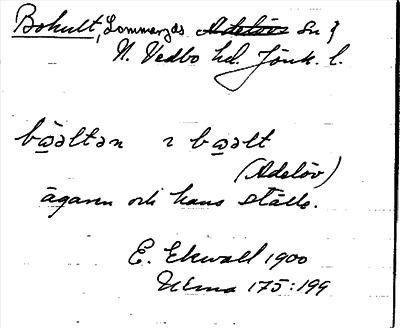 Bohult, Lommaryds Adelövs sn
N. Vedbo hd. Jönk. l.
bꜵəltən ı bꜵəlt
(Adelöv)
ägaren och hans ställe.
E. Ekwall 1900
175:199